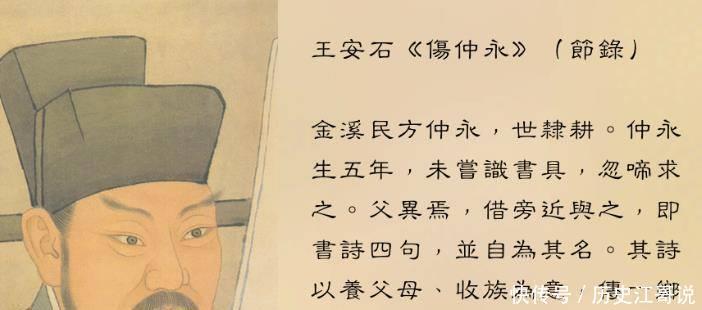 王安石《傷仲永》（節錄）
金溪民方仲永，世隸耕。仲永
生五年，未嘗識書具，忽啼求
之。父異焉，借旁近與之，即
書詩四句，並自為其名。其詩
以養父母、收族為意，傳一鄉
快传号／历史江哥说